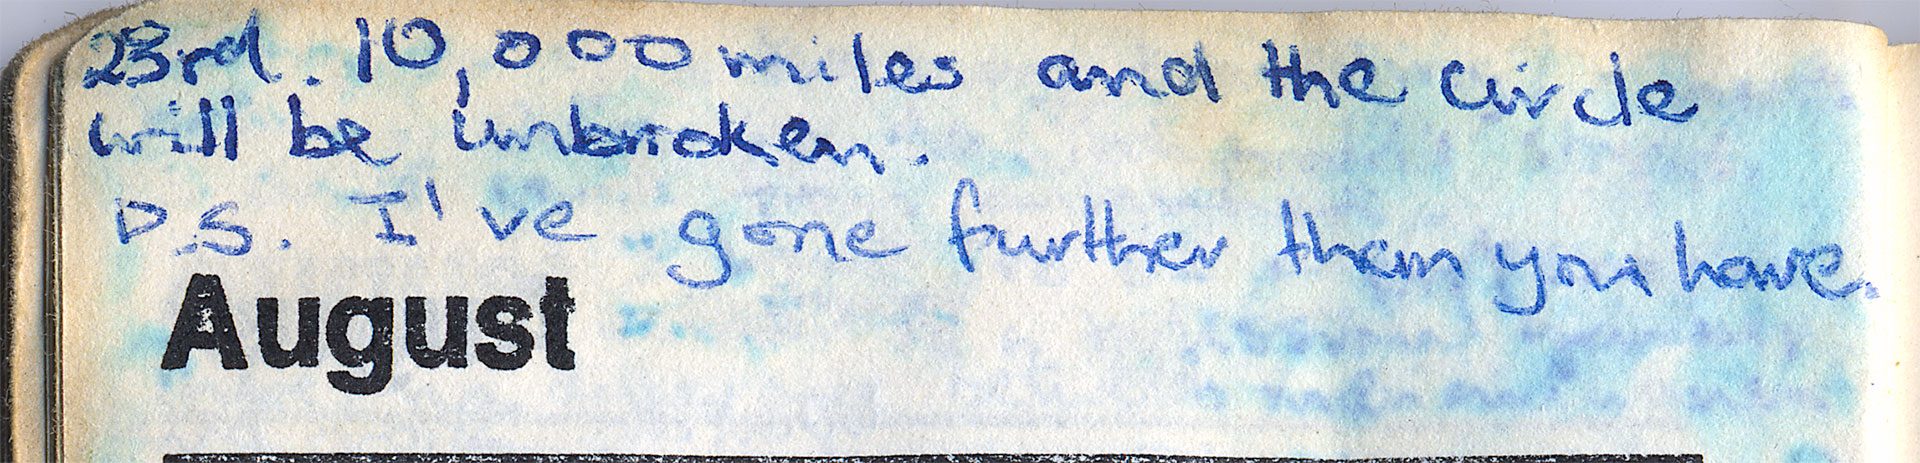 23rd. 10,000 miles and the circle
will be unbroken.
P.S. I've gone further than you have.
August